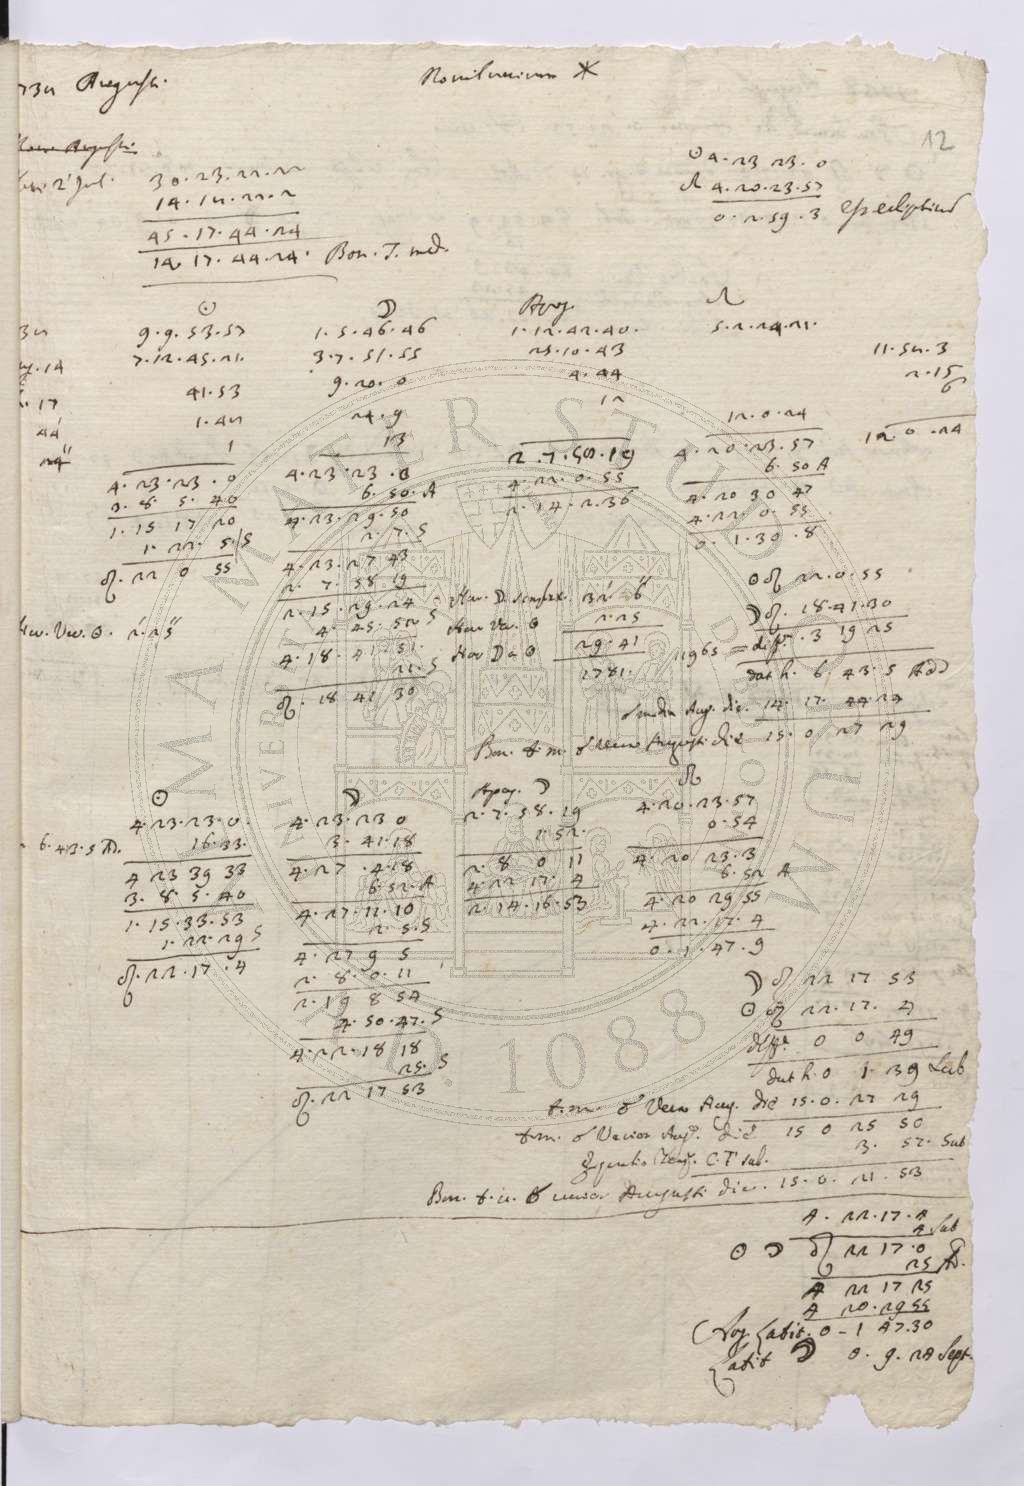 732 Augusti. Novilunium *
12
30. 23. 22. 22
14. 12. 22. 2
45. 17. 44. 24
14 17. 44. 24. Bon. T. med.
☉ 4. 23 23. 0
☊ 4. 20. 23. 57
0. 2. 59. 3 est eclipticum
☉ ☽ Apog. ☊
32 9. 9. 53. 57 1. 5. 46. 46 1. 12. 42. 40. 5. 2. 24. 21.
14 7. 12. 45. 21. 3. 7. 51. 55 25. 10. 43 11. 52. 3
17 41. 53 9. 20. 0 4. 44 2. 15
44 1. 42 24. 9 12 12. 0. 24 6
24 1 13 12 0. 24
4. 23. 23. 0 4. 23. 23. 0 2. 7. 58. 19 4. 20. 23. 57
3. 8. 5. 40 6. 50. A 4. 22. 0. 55 6. 50 A
1. 15 17 20 4. 23. 29. 50 2. 14. 2. 36 4. 20 30 47
1. 22. 5. S 2. 7. S 4. 22. 0. 55
♌. 22 0 55 4. 23. 27 43 0. 1. 30. 8
2. 7. 58. 19 ☉ ♌ 22. 0. 55
2. 15. 29. 24 Hor. D. simplex. 32' 6''
4. 45. 52 S Hor Ver. ☉ 2. 25 ☽ ♌. 18. 41. 30
Hor. Ver. ☉. 2' 25'' 4. 18. 41. 51. Hor D a ☉ 29. 41 11965 = diffa. 3 19 25
21. S 1781. dat h. 6. 43. 5 Add
♌. 18 41 30 Media Aug. die. 14. 17. 44. 24
Bon. t. m. ☌ Verae Augusti die 15. 0. 27 29
☉ ☽ Apog. ☽ ☊
4. 23. 23. 0. 4. 23. 23 0 2. 7. 58. 19 4. 20. 23. 57
6. 43. 5 Ad. 16. 33. 3. 41. 18 1. 52. 0. 54
4 23 39 33 4. 27. 4. 18 2. 8 0 11 4. 20 23. 3
3. 8. 5. 40 6. 52. A 4. 22 17. 4 6. 52 A
1. 15. 33. 53 4. 27. 11. 10 2. 14. 16. 53 4. 20 29 55
1. 22. 29 S 2. 5. S 4. 22. 17. 4
♌. 22. 17. 4 4. 27 9 5 0. 1. 47. 9
2. 8. 0. 11
2. 19 8 54 ☽ ♌ 22 17 53
4. 50. 47. S ☉ ♌ 22. 17. 4
4. 22. 18 18 diffa. 0 0 49
25. S dat h. 0 1. 39 Sub
♌. 22 17 53
t. m. ☌ Verae Aug. die 15. 0. 27 29
t. m. ☌ Verior Aug. die 15 0 25 50
C. T sub. 3. 57. Sub
Bon. t. v. ☌ verior Augusti die. 15. 0. 21. 53
4. 22. 17. 4
4 Sub
☉ ☽ ♌ 22 17. 0
25 Ad.
4 22 17 25
4 20. 29 55
Arg. Latit. 0 - 1 47. 30
Latit ☽ 0. 9. 24 Sept.
ALMA MATER STUDIORUM
UNIVERSITÀ DI BOLOGNA
A.D. 1088